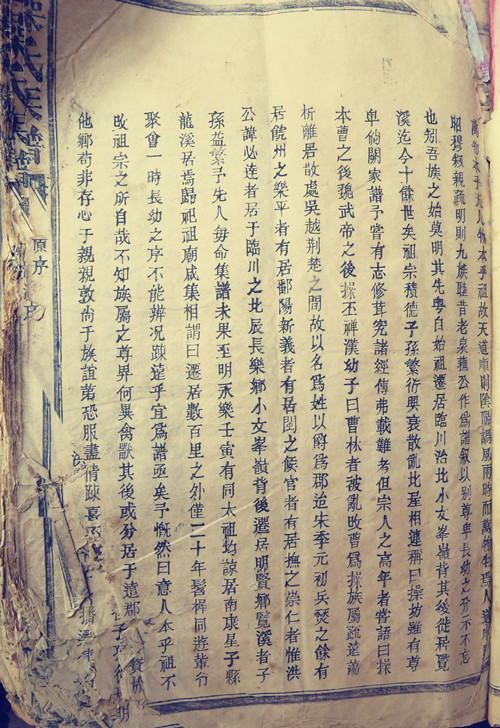 萬物本乎天人物本乎祖故天道順則陰陽調風雨時而萬物生理人道
昭穆叙親疏明則九族睦昔老泉蘇公作為譜叙以別尊卑長幼之分示不忘
也別吾族之始莫明其先粤自始祖遷居臨川治北小文峯嶺背其後徙居覽
溪迄今十餘世矣祖宗積德子孫繁衍興衰散亂比屋相連稱曰操坊雖有尊
卑倘闕家譜予嘗有志修葺宏諸經傳弗載難考但宗人之高年者嘗語曰操
本曹之後魏武帝之後操丕禅漢幼子曰曹林者被亂改曹為操族屬疏遠蕩
析離居故處吳越荆楚之間故以名為姓以爵為邪迨宋季元初兵燹之餘有
居饒州之樂平者有居鄱陽新義者有居閩之候官者有居撫之崇仁者惟洪
公諱必達者居于臨川之北辰長樂鄉小文峯嶺背後遷居明賢鄉覽溪者子
孫益繁予先人毎命集譜未果至明永樂壬寅有同太祖均諒居南康星子縣
龍溪居焉歸祀祖廟咸集相謂曰遷居數百里之外僅二十年髫稚同遊輩今
聚會一時長幼之序不能辨况疎遠乎宜為譜亟矣予慨然曰意人本乎祖不
敢祖宗之所自哉不知族屬之尊畀何異禽獸其後或分居于遠郡
他鄉苟非存心于親親敦尚于族誼第恐服盡情疎喜
氏族譜
原序